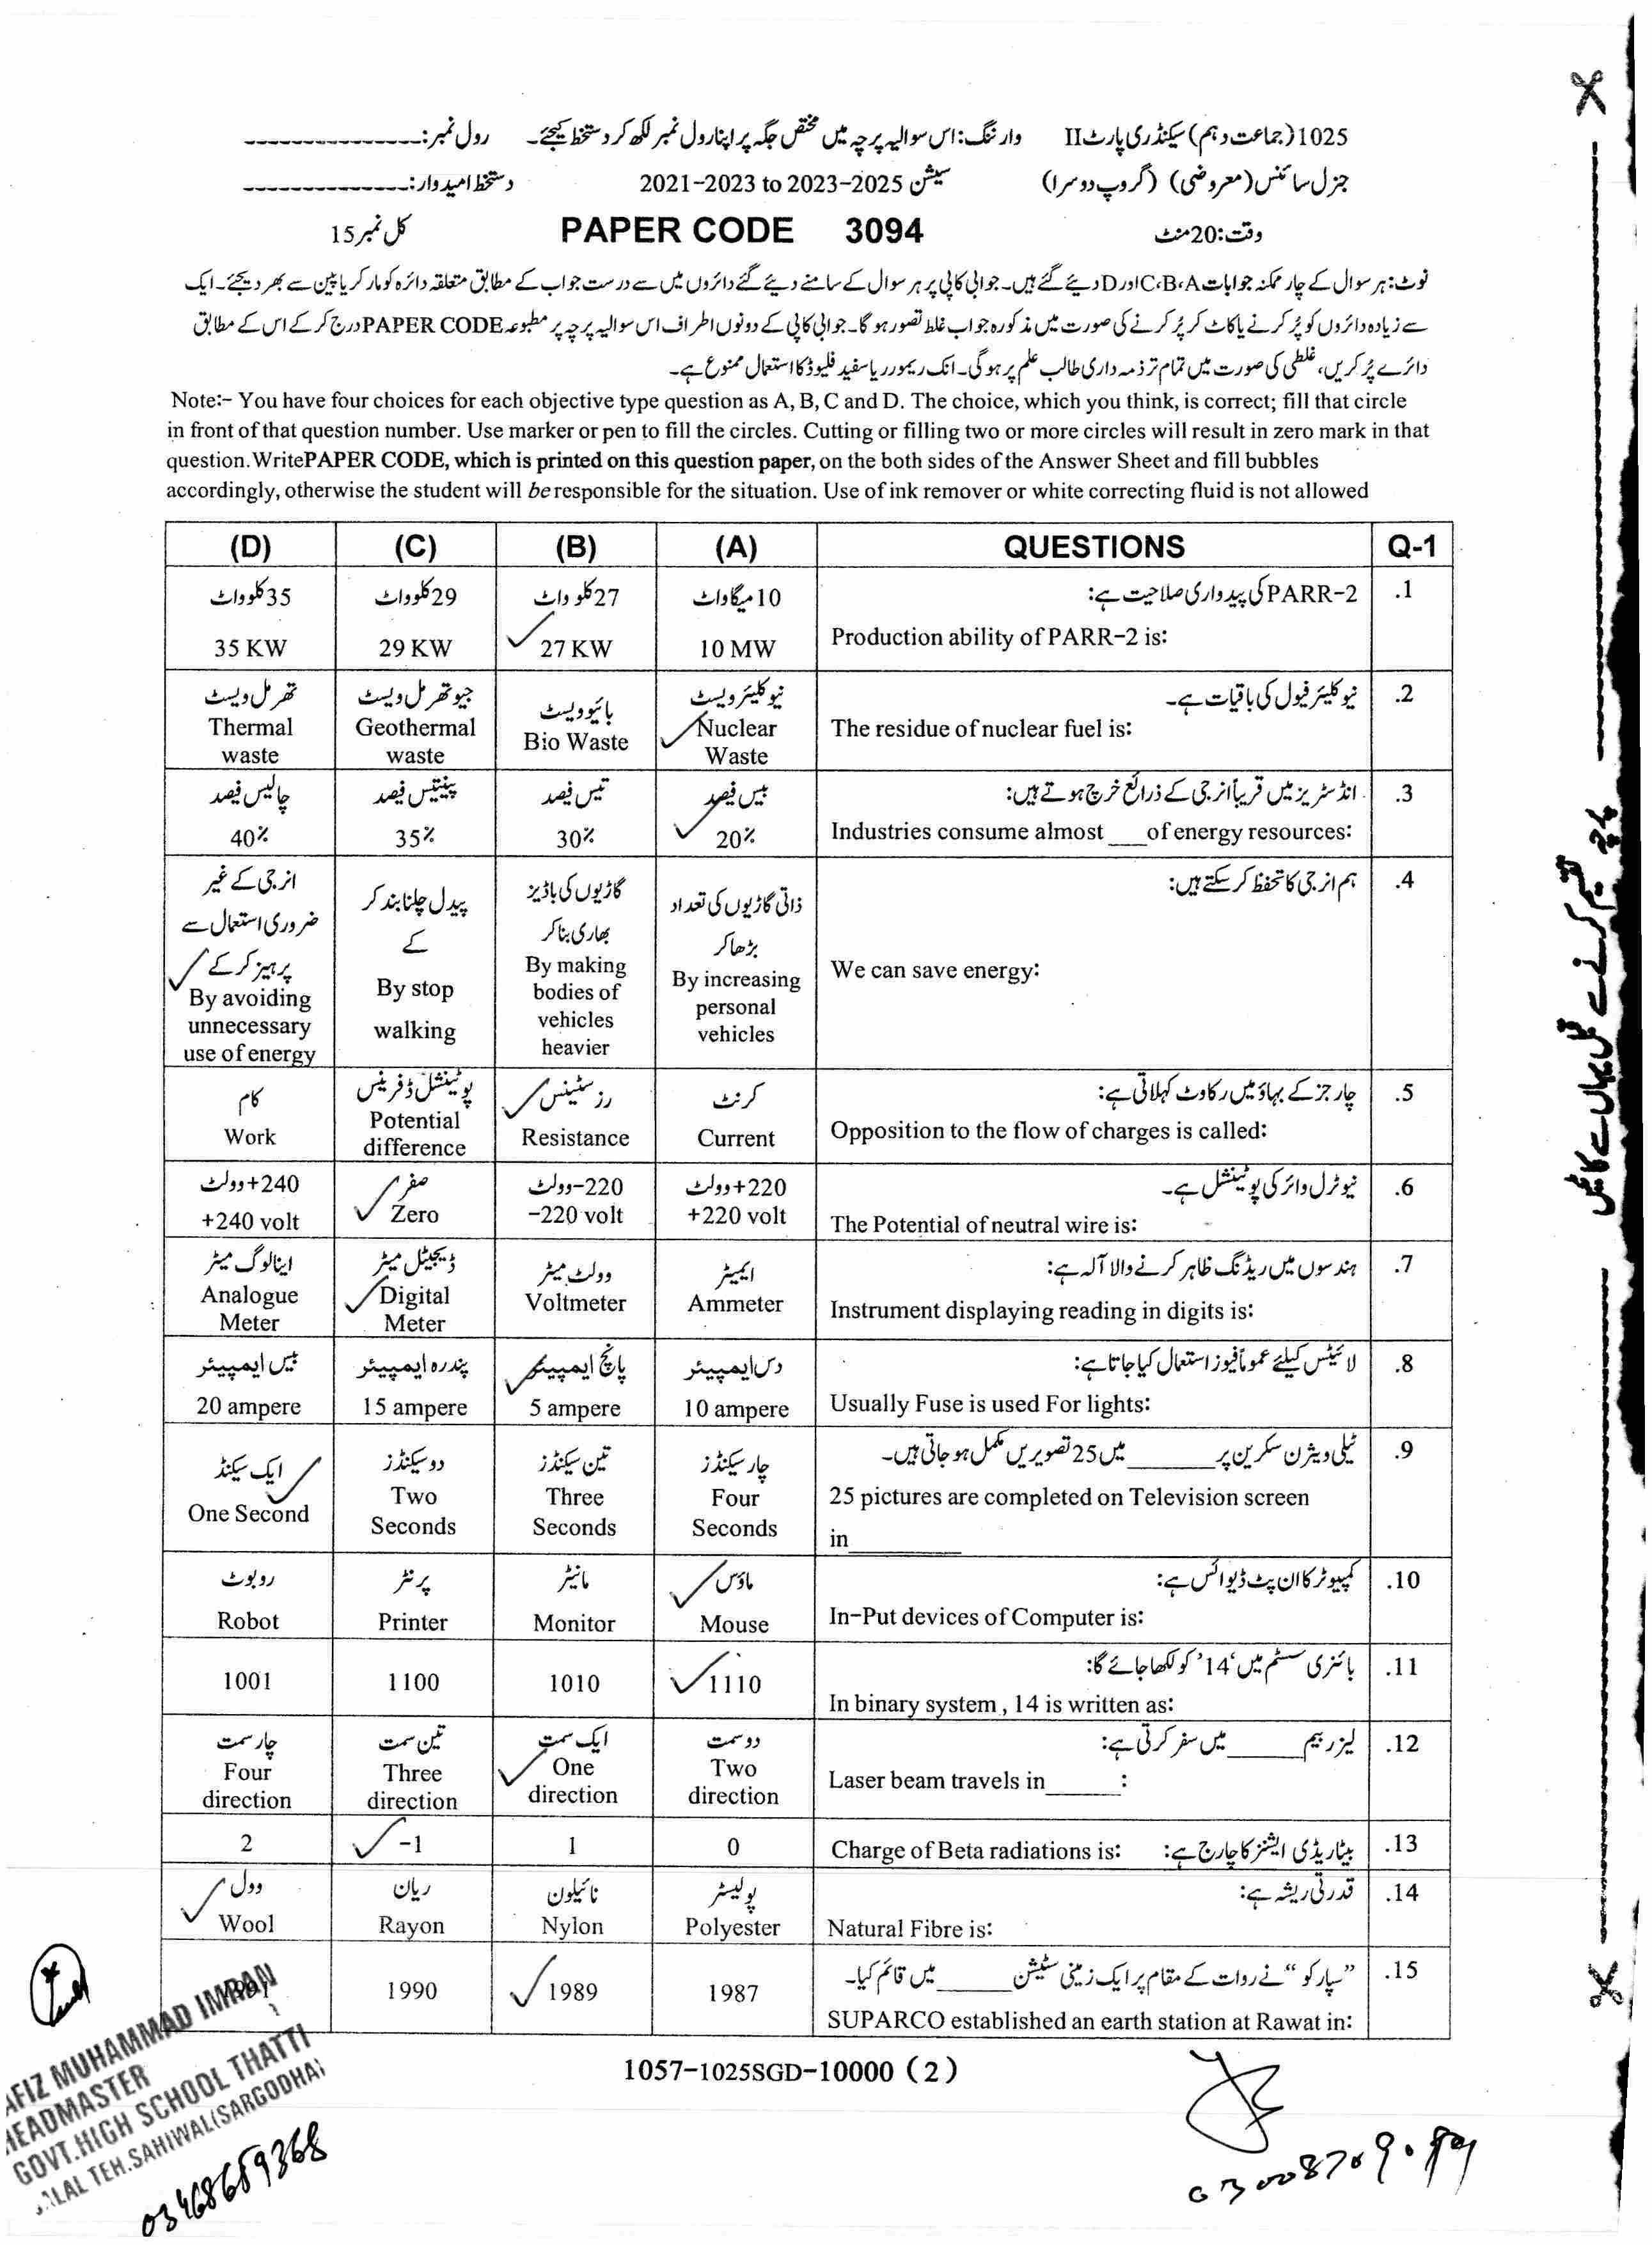 1025 (جماعت دہم) سیکنڈری پارٹ II وارننگ: اس سوالیہ پرچہ میں مختص جگہ پر اپنا رول نمبر لکھ کر دستخط کیجئے۔ رول نمبر:---------------
جنرل سائنس (معروضی) (گروپ دوسرا) سیشن 2021-2023 to 2023-2025 دستخط امیدوار:---------------
وقت: 20 منٹ PAPER CODE 3094 کل نمبر 15
نوٹ: ہر سوال کے چار ممکنہ جوابات C،B،A اور D دیئے گئے ہیں۔ جوابی کاپی پر ہر سوال کے سامنے دیئے گئے دائروں میں سے درست جواب کے مطابق متعلقہ دائرہ کو مارکر یا پین سے بھر دیجئے۔ ایک
سے زیادہ دائروں کو پُر کرنے یا کاٹ کر پُر کرنے کی صورت میں مذکورہ جواب غلط تصور ہو گا۔ جوابی کاپی کے دونوں اطراف اس سوالیہ پرچہ پر مطبوعہ PAPER CODE درج کر کے اس کے مطابق
دائرے پُر کریں، غلطی کی صورت میں تمام تر ذمہ داری طالب علم پر ہو گی۔ انک ریموور یا سفید فلیوڈ کا استعمال ممنوع ہے۔
Note:- You have four choices for each objective type question as A, B, C and D. The choice, which you think, is correct; fill that circle
in front of that question number. Use marker or pen to fill the circles. Cutting or filling two or more circles will result in zero mark in that
question. Write PAPER CODE, which is printed on this question paper, on the both sides of the Answer Sheet and fill bubbles
accordingly, otherwise the student will be responsible for the situation. Use of ink remover or white correcting fluid is not allowed
(D) (C) (B) (A) QUESTIONS Q-1
35 کلو واٹ 29 کلو واٹ 27 کلو واٹ 10 میگا واٹ PARR-2 کی پیداواری صلاحیت ہے: .1
35 KW 29 KW 27 KW 10 MW Production ability of PARR-2 is:
تھرمل ویسٹ جیوتھرمل ویسٹ بائیو ویسٹ نیوکلیئر ویسٹ نیوکلیئر فیول کی باقیات ہے۔ .2
Thermal waste Geothermal waste Bio Waste Nuclear Waste The residue of nuclear fuel is:
چالیس فیصد پینتیس فیصد تیس فیصد بیس فیصد انڈسٹریز میں قریباً انرجی کے ذرائع خرچ ہوتے ہیں: .3
40% 35% 30% 20% Industries consume almost ___ of energy resources:
انرجی کے غیر ضروری استعمال سے پرہیز کر کے پیدل چلنا بند کر کے گاڑیوں کی باڈیز بھاری بنا کر ذاتی گاڑیوں کی تعداد بڑھا کر ہم انرجی کا تحفظ کر سکتے ہیں: .4
By avoiding unnecessary use of energy By stop walking By making bodies of vehicles heavier By increasing personal vehicles We can save energy:
کام پوٹینشل ڈفرینس رزسٹینس کرنٹ چارجز کے بہاؤ میں رکاوٹ کہلاتی ہے: .5
Work Potential difference Resistance Current Opposition to the flow of charges is called:
+240 وولٹ صفر -220 وولٹ +220 وولٹ نیوٹرل وائر کی پوٹینشل ہے۔ .6
+240 volt Zero -220 volt +220 volt The Potential of neutral wire is:
اینالوگ میٹر ڈیجیٹل میٹر وولٹ میٹر ایمیٹر ہندسوں میں ریڈنگ ظاہر کرنے والا آلہ ہے: .7
Analogue Meter Digital Meter Voltmeter Ammeter Instrument displaying reading in digits is:
بیس ایمپیئر پندرہ ایمپیئر پانچ ایمپیئر دس ایمپیئر لائیٹس کیلئے عموماً فیوز استعمال کیا جاتا ہے: .8
20 ampere 15 ampere 5 ampere 10 ampere Usually Fuse is used For lights:
ایک سیکنڈ دو سیکنڈز تین سیکنڈز چار سیکنڈز ٹیلی ویژن سکرین پر ______ میں 25 تصویریں مکمل ہو جاتی ہیں۔ .9
One Second Two Seconds Three Seconds Four Seconds 25 pictures are completed on Television screen in________
روبوٹ پرنٹر مانیٹر ماؤس کمپیوٹر کا ان پٹ ڈیوائس ہے: .10
Robot Printer Monitor Mouse In-Put devices of Computer is:
بائنری سسٹم میں '14' کو لکھا جائے گا: .11
1001 1100 1010 1110 In binary system, 14 is written as:
چار سمت تین سمت ایک سمت دو سمت لیزر بیم _____ میں سفر کرتی ہے: .12
Four direction Three direction One direction Two direction Laser beam travels in_____ :
2 -1 1 0 Charge of Beta radiations is: بیٹا ریڈی ایشنز کا چارج ہے: .13
وول ریان نائیلون پولیسٹر قدرتی ریشہ ہے: .14
Wool Rayon Nylon Polyester Natural Fibre is:
"سپارکو" نے روات کے مقام پر ایک زمینی سٹیشن _____ میں قائم کیا۔ .15
1991 1990 1989 1987 SUPARCO established an earth station at Rawat in:
1057-1025SGD-10000 (2)
MUHAMMAD IMRAN
HEADMASTER
GOVT.HIGH SCHOOL THATTI
TEH.SAHIWAL(SARGODHA)
03468659368
پرچہ تقسیم کرنے سے قبل یہاں سے کاٹیں